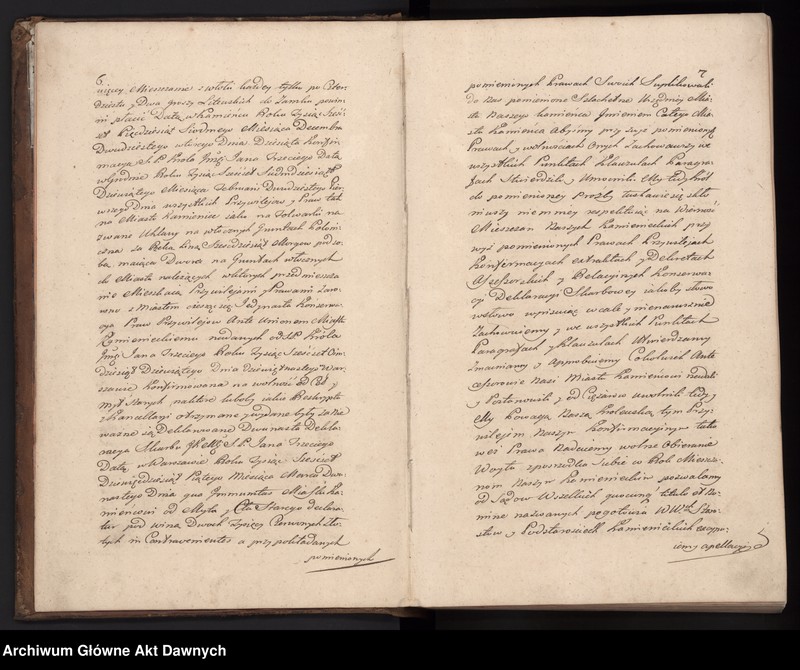 6.
niący Mieszczanie z włoki każdey tylko po Czter-
dziestu y Dwa groszy Litewskich do Zamku powin-
ni płacić Data w Kamieńcu Roku Tysiąc Sześć-
set Pięćdziesiąt Siodmego Miesiąca Decembra
Dwudziestego wtorego Dnia Dziesiąta Konfir-
macya S. P. Krola Jmći Jana Trzeciego Data
w Grodnie Roku Tysiąc Sześćset Siedmdziesiąt
Dziewiątego Miesiąca Februarii Dwudziestego Pier-
wszego Dnia wszystkich Przywilejow y Praw tak
na Miasto Kamieniec jako na Folwarki na-
zwane Uhlany na włocznych Gruntach
czona za Rzeką Lsną Sześćdziesiąt Morgow pod so-
bą mająca Dworca na Gruntach włocznych
do Miasta należących w których przedmieszcza
nie Mieszkają Przywilejami y Prawami zaro-
wno z Miastem cieszą się Jedynasta Konserwa-
cya Praw Przywilejow Ante Unionem Miastu
Kamienieckiemu nadanych od S. P. Krola
Jmći Jana Trzeciego Roku Tysiąc Sześćset Ośm-
dziesiąt Dziewiątego Dnia dziewiętnastego w War-
szawie konfirmowana na wolność od Ceł y
Myt Starych na które lubo by jakie Reskrypta
z Kancellaryi otrzymane y wydane były za nie
ważne są Deklarowane Dwunasta Dekla-
racya Skarbu S. P. Jana Trzeciego
Data w Warszawie Roku Tysiąc Sześćset
Dziewięćdziesiąt Piątego Miesiąca Marca Dwu-
nastego Dnia qua Immunitas Miasta Ka-
mieńcowi od Myta y Cła Starego declara-
tur pod winą Dwoch Tysięcy Czerwonych Zło-
tych in Contravenientes a przy pokładanych
pomienionych
7
pomienionych Prawach Swoich Supplikowali
do Nas pomienione Szlachetne Urzędnicy Mia-
sta Naszego Kamieńca Imieniem Całego Mia-
sta Kamieńca Abyśmy przy tych pomienionych
Prawach y wolnościach Onych Zachowawszy we
wszystkich Punktach Klauzulach Paragra-
fach Stwierdzili y Umocnili. My tedy Krol
do pomienioney Prozby łaskawie się skło-
niwszy niemniey respektując na Wierność
Mieszczan Naszych Kamienieckich przy
wyż pomienionych Prawach Przywilejach
Konfirmacyach extraktach y Dekretach
Assessorskich y Relacyinych Konserwa-
cyi Deklaracyi Skarbowey jakoby słowo
w słowo wpisując w cale y nienaruszenie
Zachowujemy y we wszystkich Punktach
Paragrafach y Klauzulach Utwierdzamy
Zmacniamy y Approbujemy Cokolwiek Ante
cessorowie Nasi Miasto Kamieńcowi nadali
y Postanowili y od Ciężarow uwolnili tedy y
My Powagą Naszą Krolewską tym Przy-
wilejem Naszym Konfirmacyinym
wes Prawa Radziemy wolne Obieranie
Woyta z posrzodka Siebie w Rok Mieszcza-
nom Naszym Kamienieckim pozwalamy
od Sądow Wszelkich quocunq titulo et no-
mine nazwanych WWch Staro-
stow y Podstarościch Kamienieckich exypu-
iemy apellacyją
Archiwum Główne Akt Dawnych